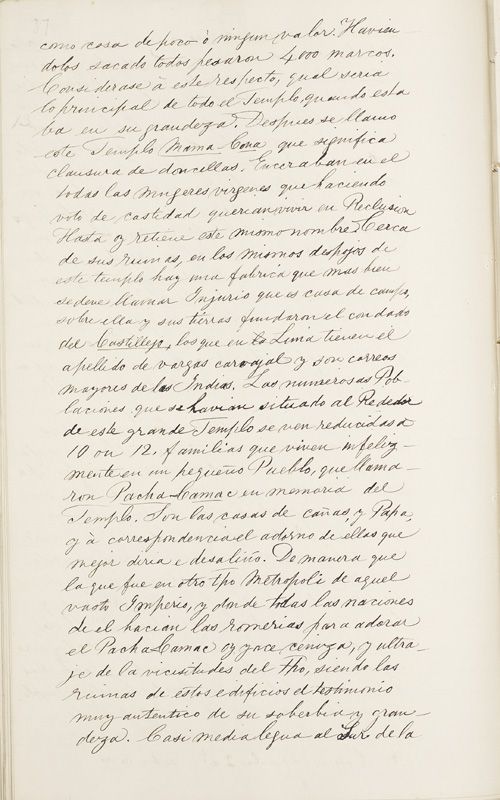 37
como cosa de poco ò ningun valor. Havien
dolos sacado todos pesaron 4000 marcos.
Considerase à este respecto, qual seria
lo principal de todo el Templo, quando esta
ba en su grandeza. Despues se llamo
este Templo Mama-Cona que significa
clausura de doncellas. Encerraban en el
todas las mugeres virgenes que haciendo
voto de castidad querian vivir en Reclusion
Hasta oy retiene este mismo nombre. Cerca
de sus ruinas, en los mismos despojos de
este templo hay una fabrica que mas bien
se deve llamar Injurio que es casa de campo,
sobre ella y sus tierras fundaron el condado
del Castillejo, los que en la Lima tienen el
apellido de vargas carvajal y son correos
mayores de las Indias. Las numerosas Pob-
laciones que se havian situado al Rededor
de este grande Templo se ven reducidas a
10 ou 12. familias que viven infeliz-
mente en un pequeño Pueblo, que llama-
ron Pacha-Camac en memoria del
Templo. Son las casas de cañas, y Papa,
y à correspondencia el adorno de ellas que
mejor diria e desaliño. De manera que
la que fue en otro tpo Metropoli de aquel
vasto Imperio, y donde todas las naciones
de el hacian las romerias para adorar
el Pacha Camac oy yace ceniza, y ultra-
je de la vicisitudes del tpo, siendo las
ruinas de estos edificios el testimonio
muy autentico de su soberbia y gran-
deza. Casi media legua al Sur de la